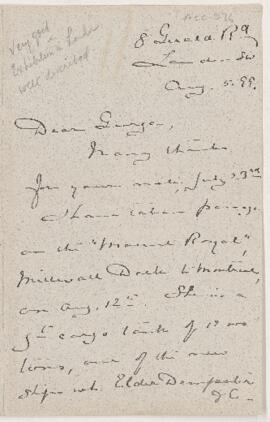 ACC 576
Very good
Exhibition in London
well described
8 Gerald Rd
London SW
Aug. 5. 99.
Dear George,
Many thanks
for yours of July 23rd
I have taken passage
on the "Mount Royal",
Millwall Dock to Montreal,
on Aug. 12th. She is a
cargo tank of
tons, one of the new
ships wh. Elder Dempster
& C.